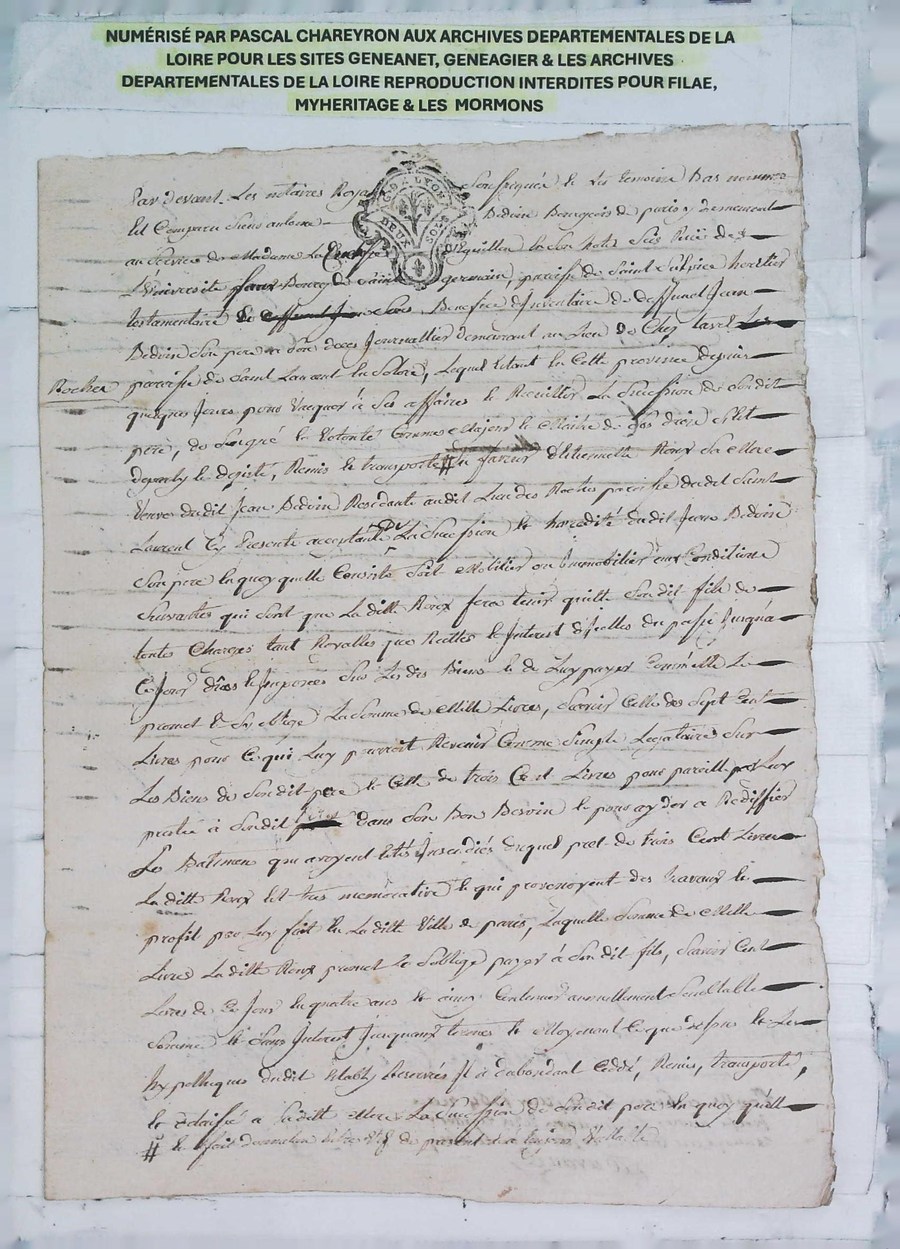 NUMÉRISÉ PAR PASCAL CHAREYRON AUX ARCHIVES DEPARTEMENTALES DE LA
LOIRE POUR LES SITES GENEANET, GENEAGIER & LES ARCHIVES
DEPARTEMENTALES DE LA LOIRE REPRODUCTION INTERDITES POUR FILAE,
MYHERITAGE & LES MORMONS
Par Devant Les notaires Royaux soussignée & les temoins Bas nommes
Est Comparu Sieur antoine Bedoin Bourgeois de paris y demeurant
au Service de Madame La d'Eguillon en Son hotel Size Ruë de
L'Université faux Bourg de Saint germain, paroisse de Saint Sulpice heritier
testamentaire Benefice d'Inventaire de deffunct Jean
Bedoin Son pere Journallier demeurant au Lieu de
paroisse de Saint Laurent la Solore, Lequel Etant en Cette province depuis
Rocher
quelques Jours pour Vacquer à Ses affaires & Recueillir La Succession de Sondit
pere, de Son gré & Volonté Comme Majeur & Maitre de Ses droits
depuis le Remis & transporté # en faveur d'Etiennette Roux Sa Mere
Veuve dudit Jean Bedoin Residante audit Lieu des Roches paroisse dudit Saint
Laurent Cy Presente acceptante La Succession & heredité dudit Jean Bedoin
Son pere En quoy quelle Consiste Soit Mobilier ou Immobilier aux Conditions
Suivantes qui Sont que La ditte Roux fera tenir quitte Sondit fils de
toutes Charges tant Royalles que Reelles & Interest d'Icelles du passé Jusqu'à
Ce Jour Imposées Sur Les dits Biens & de Luy payer Comme Elle Le
promet & S'oblige La Somme de Mille Livres, Savoir Celle de Sept Cent
Livres pour Ce qui Luy pourroit Revenir Comme Simple Legataire Sur
Les Biens de Sondit pere & Celle de trois Cent Livres pour pareille par Luy
pretée à Sondit pere dans Son Bon Besoin & pour ayder a Rediffier
Le Batiment qui avoyent Etés Insendiés duquel pret de trois Cent Livres
La ditte Roux Est tres memorative & qui provenoyent des travaux &
profit par Luy fait En La ditte Ville de paris, Laquelle Somme de Mille
Livres La ditte Roux promet & S'oblige payer à Sondit fils, Savoir Cent
Livres de Ce Jour En quatre ans & ainsy Continuer annuellement Semblable
Somme & Sans Interest Jusqu'aux termes & Moyenant Ce que dessus & Les
hypotheques dudit Etably Reservés Il a d'abondant Ceddé, Remis, transporté,
& delaisé a Saditte Mere La Succession de Sondit pere En quoy qu'Elle
# & fait